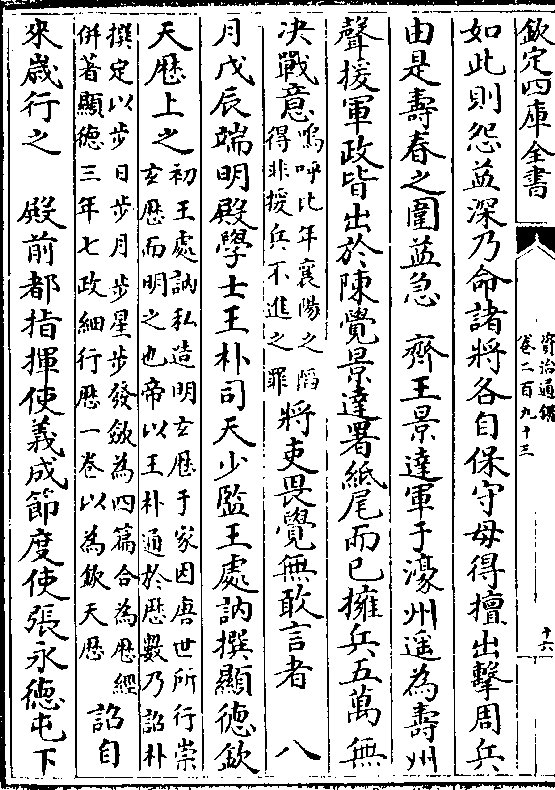 欽定四庫全書
資治通鑑
卷二百九十三
十六
如此則怨益深乃命諸將各自保守毋得擅出擊周兵
由是壽春之圍益急 齊王景達軍于濠州遥為壽州
聲援軍政皆出於陳覺景達署紙尾而已擁兵五萬無
决戰意嗚呼比年襄陽之䧟得非援兵不進之罪將吏畏覺無敢言者 八
月戊辰端明殿學士王朴司天少監王處訥撰顯德欽
天厯上之初王處訥私造明𤣥厯于家因唐世所行崇𤣥厯而明之也帝以王朴通於厯數乃詔朴
撰定以步日步月步星步發斂為四篇合為厯經併著顯德三年七政細行厯一卷以為欽天厯 詔自
來嵗行之 殿前都指揮使義成節度使張永德屯下